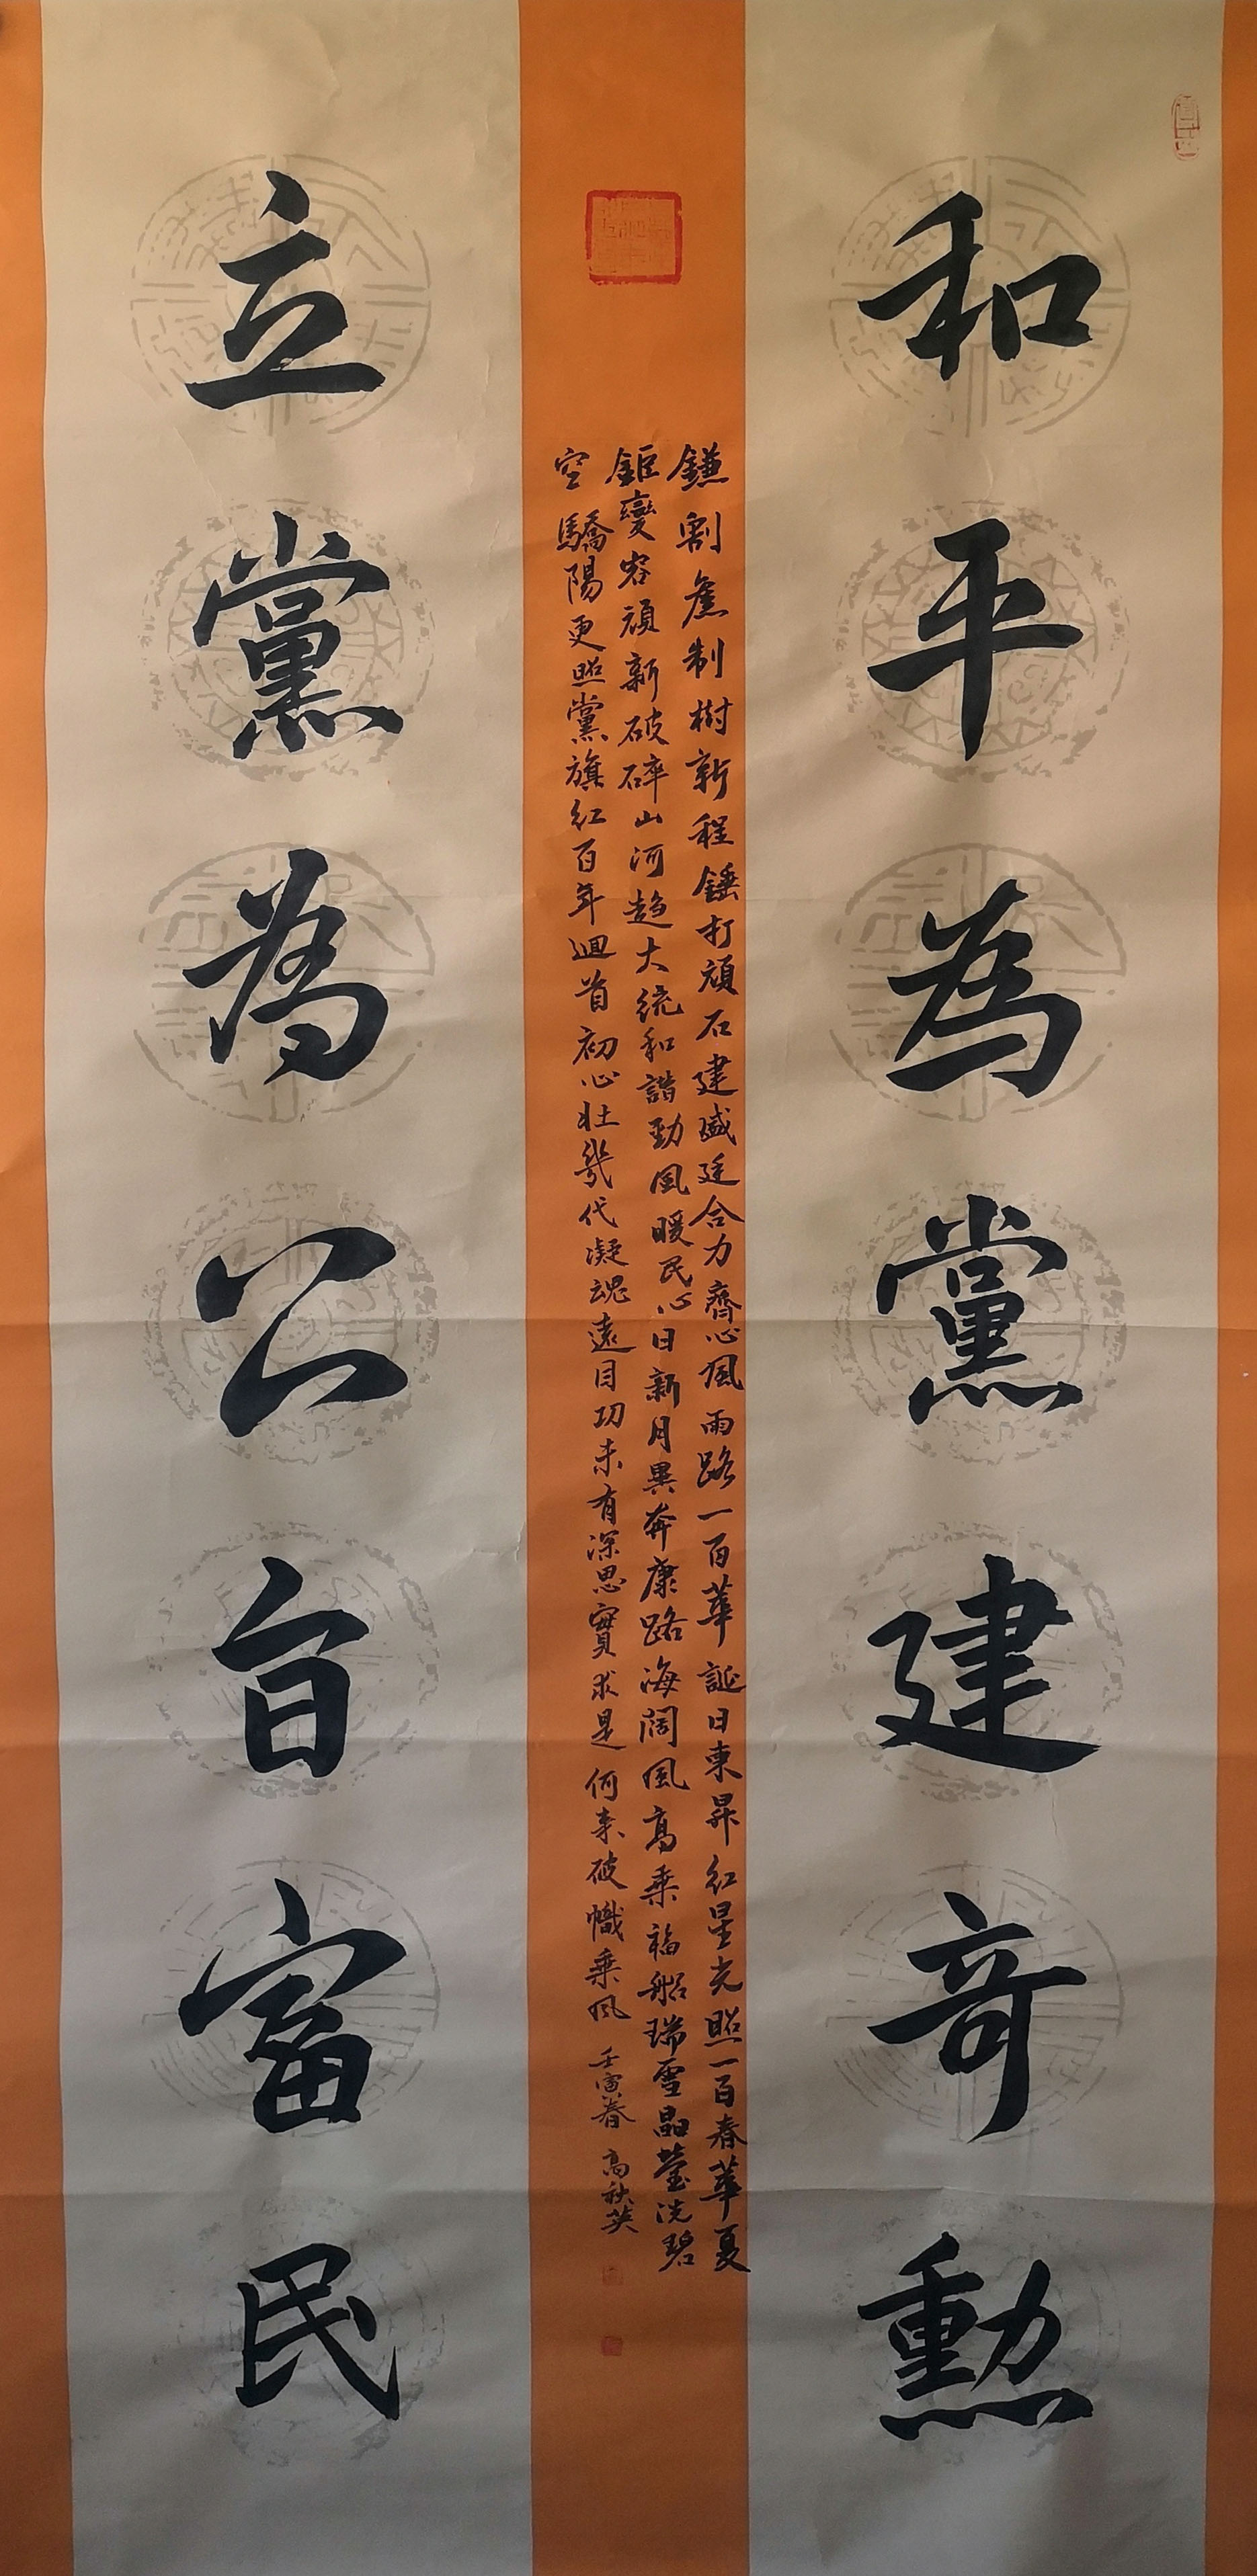 和平為黨建奇勳
鎌割舊制樹新程錘打頑石建盛廷合力齊心風雨路一百華誕日東昇紅星光照一百春華夏
鉅變容頑新破碎山河趨大統和諧勁風暖民心日新月異奔康路海闊風高乘福船瑞雪晶瑩洗碧
空驕陽更照黨旗紅百年迴首初心壯幾代凝魂遠目功未有深思實求是何來破幟乘風
壬寅春 高秋英
立黨為公旨富民